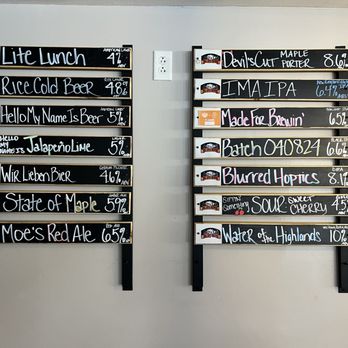 Lite Lunch 4%
Rice Cold Beer 4.8%
Hello My Name Is Beer 5%
HELLO MY NAME IS Jalapeño Lime 5%
Wir Lieben Bier 4.6%
State of Maple 5.9%
Moe's Red Ale 6.5%
Devil's Cut MAPLE PORTER 8.6%
IMA IPA 6.4%
Made For Brewin'
Batch 040824 6.6%
Blurred Hoptics 8.1%
SOUR SWEET CHERRY 4.5
Water of the Highlands 10%